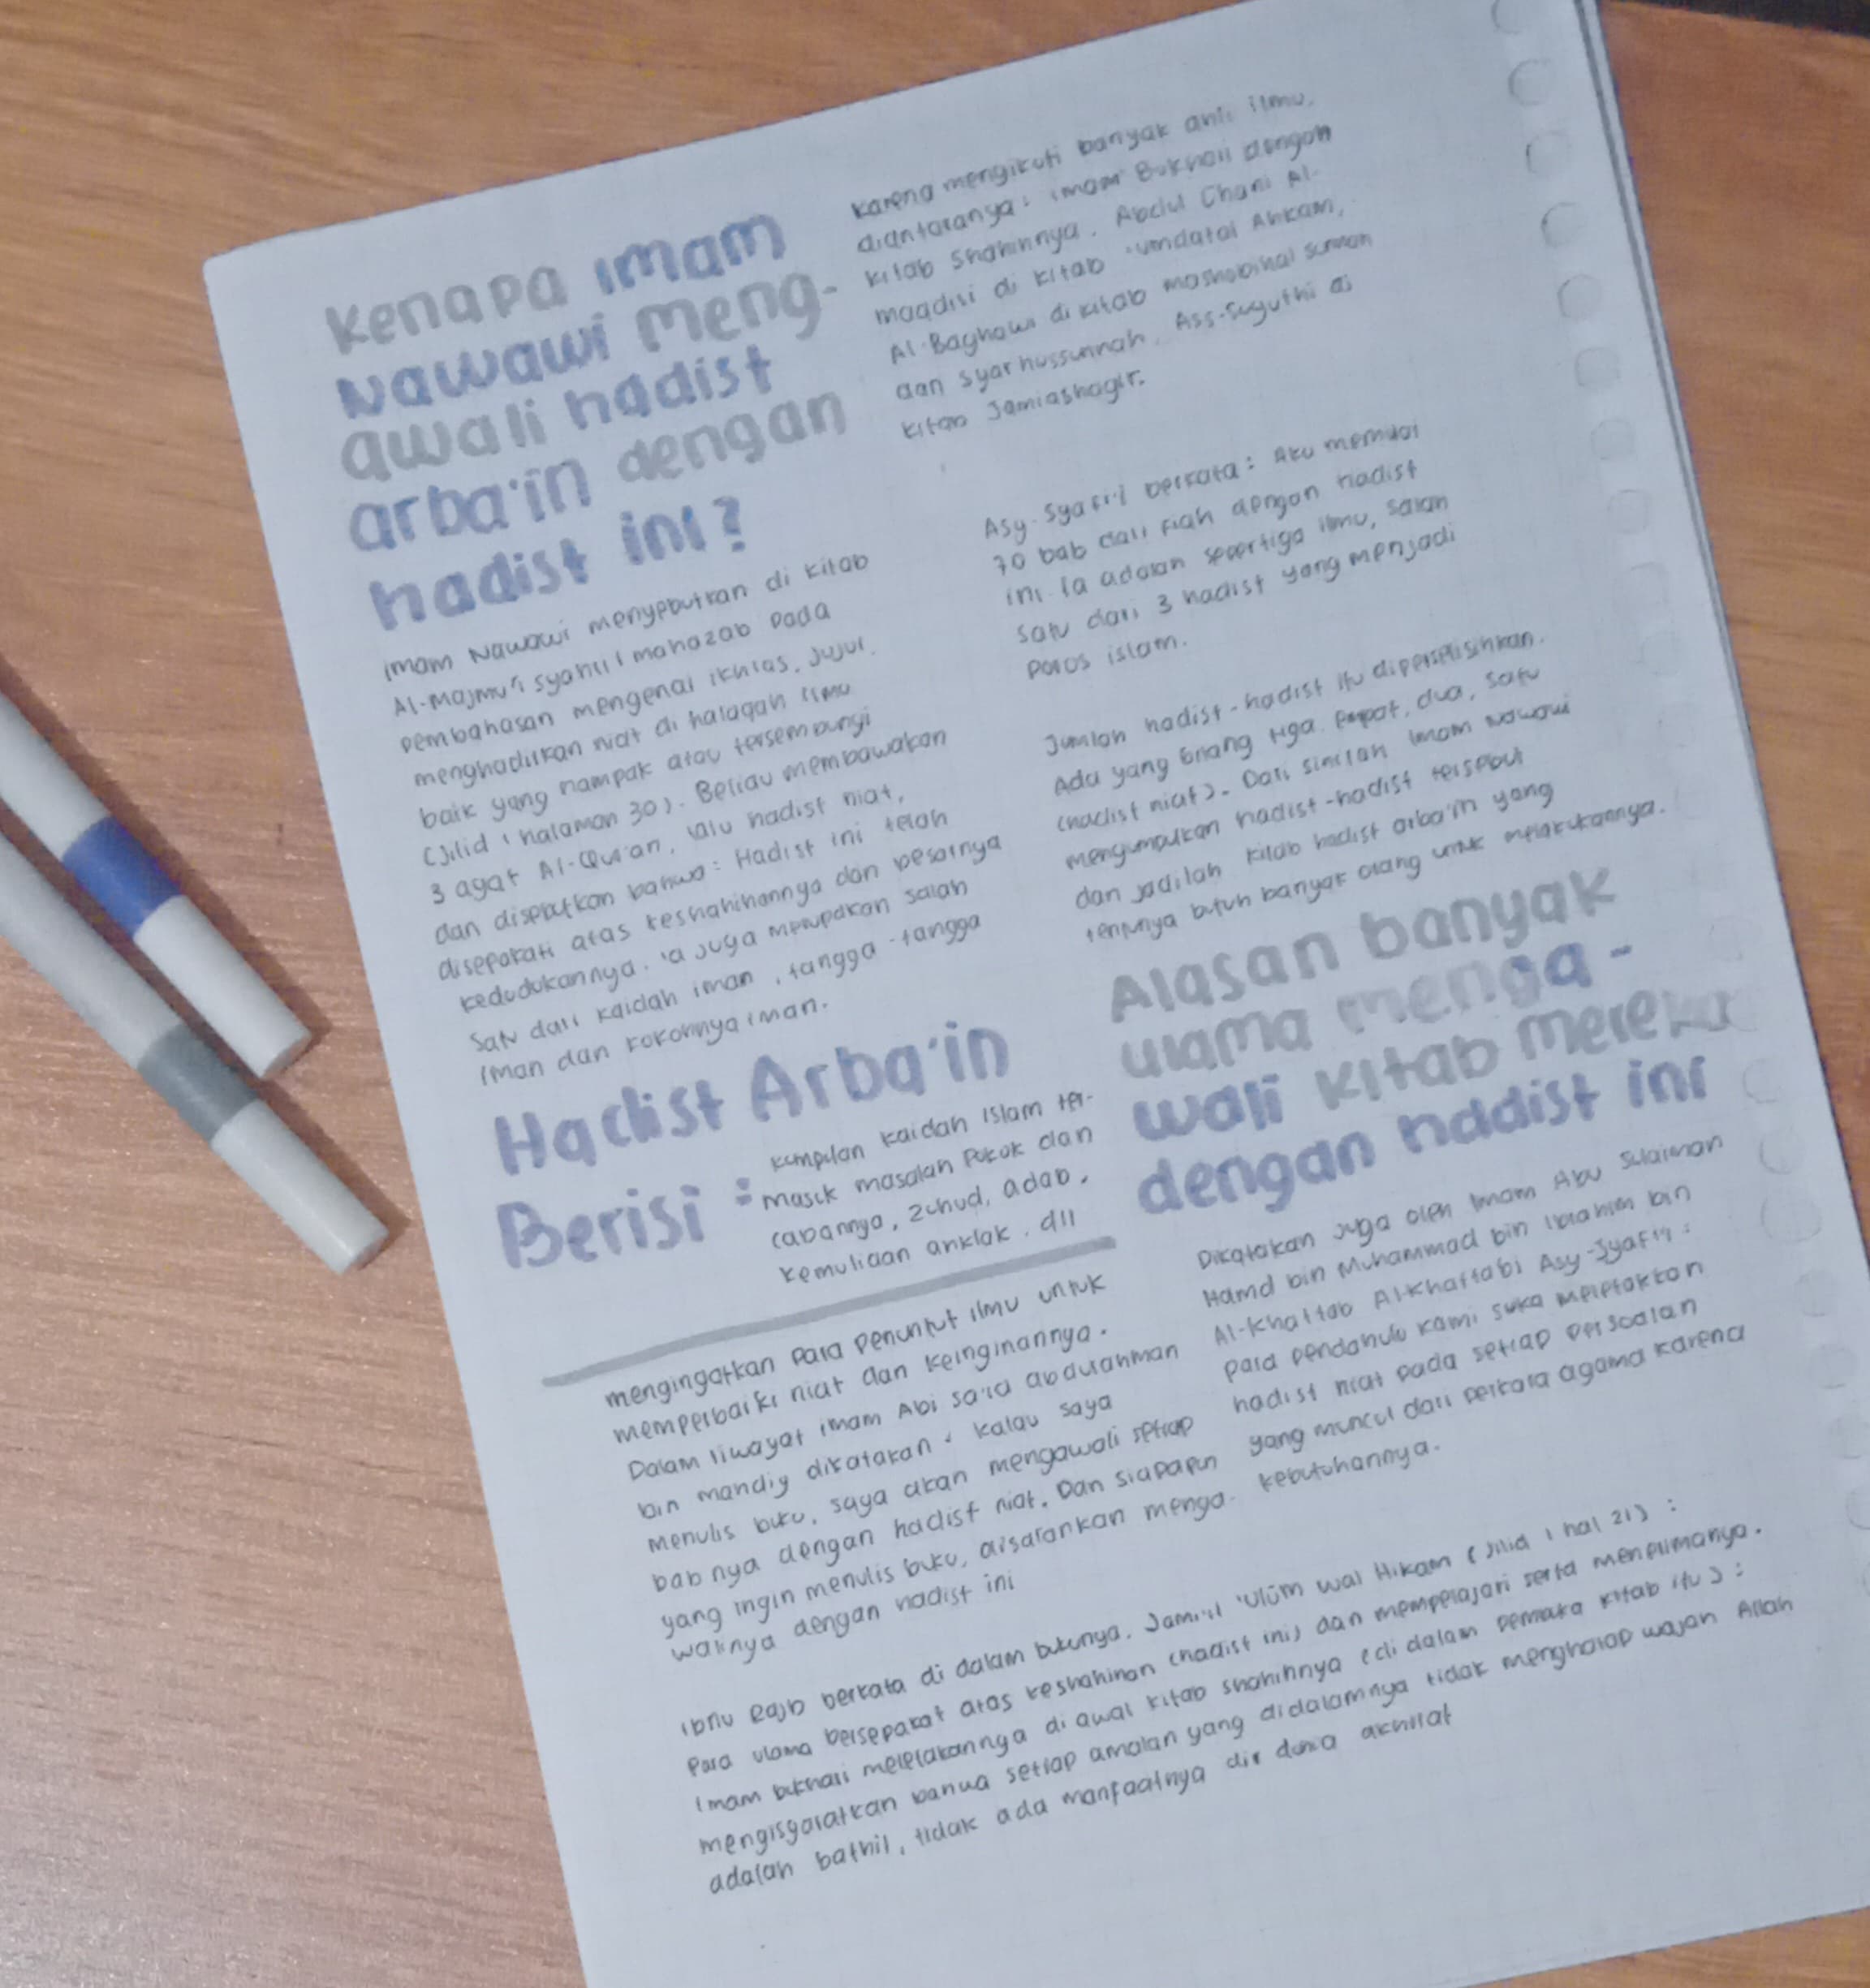 Kenapa imam
Nawawi meng-
awali hadist
arba'in dengan
hadist ini?
imam Nawawi menyebutkan di kitab
Al-Majmu'i syahril mahazab pada
pembahasan mengenai ikhlas, jujur,
menghadirkan niat di halaqah ilmu
baik yang nampak atau tersembunyi
(Jilid 1 halaman 30). Beliau membawakan
3 ayat Al-Qur'an, lalu hadist niat,
dan disebutkan bahwa: Hadist ini telah
disepakati atas keshahihannya dan besarnya
kedudukannya. ia juga merupakan salah
satu dari kaidah iman, tangga-tangga
iman dan kokohnya iman.
Hadist Arba'in
Berisi :
kumpulan kaidah Islam ter-
masuk masalah pokok dan
cabannya, zuhud, adab,
kemuliaan anklak, dll
mengingatkan para penuntut ilmu untuk
memperbaiki niat dan keinginannya.
Dalam riwayat imam Abi sa'id abdurahman
bin mandiy dikatakan : kalau saya
menulis buku, saya akan mengawali setiap
babnya dengan hadist niat. Dan siapapun
yang ingin menulis buku, disarankan menga-
walinya dengan hadist ini
karena mengikuti banyak ahli ilmu,
diantaranya: imam Bukhari dengan
kitab shahihnya. Abdul Ghani Al-
maqdisi di kitab 'umdatal Ahkam,
Al-Baghowi di kitab mashobihal sunnah
dan syarhussunnah, Ass-Suyuthi di
kitab Jamiashagir.
Asy-Syafi'i berkata: Aku memulai
70 bab dari fiqh dengan hadist
ini. Ia adalah sepertiga ilmu, salah
satu dari 3 hadist yang menjadi
poros islam.
Jumlah hadist-hadist itu diperselisihkan.
Ada yang bilang tiga, empat, dua, satu
(hadist niat). Dari sinilah Imam Nawawi
mengumpulkan hadist-hadist tersebut
dan jadilah kitab hadist arba'in yang
tentunya butuh banyak orang untuk melakukannya.
Alasan banyak
ulama menga-
wali kitab mereka
dengan hadist ini
Dikatakan juga oleh Imam Abu Sulaiman
Hamd bin Muhammad bin Ibrahim bin
Al-Khattab Al-Khattabi Asy-Syafi'i :
para pendahulu kami suka meletakkan
hadist niat pada setiap persoalan
yang muncul dari perkara agama karena
kebutuhannya.
Ibnu Rajb berkata di dalam bukunya, Jami'il 'Ulum wal Hikam (Jilid 1 hal 21) :
Para ulama bersepakat atas keshahihan (hadist ini) dan mempelajari serta menerimanya.
Imam bukhari meletakannya di awal kitab shahihnya (di dalam pemuka kitab itu) :
mengisyaratkan bahwa setiap amalan yang didalamnya tidak mengharap wajah Allah
adalah bathil, tidak ada manfaatnya dir dunia akhirat